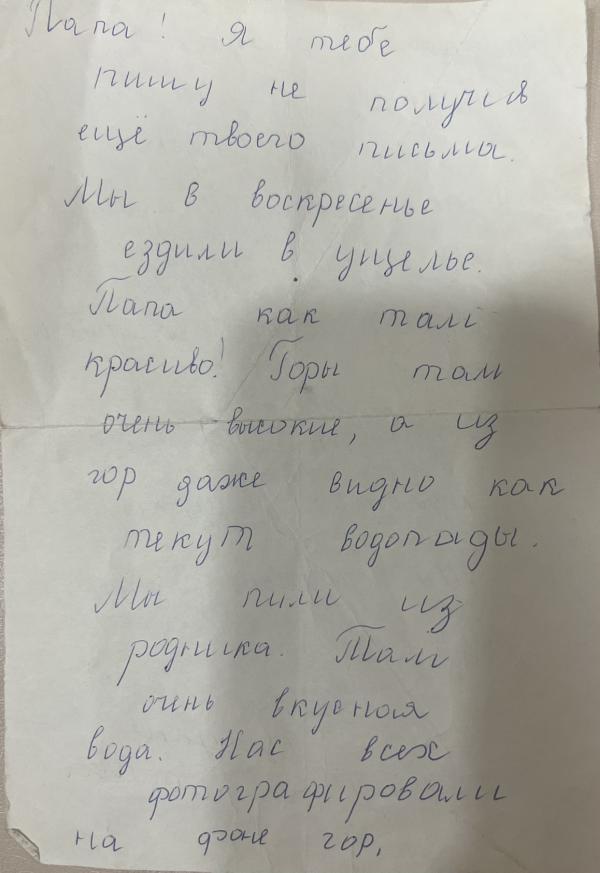 Папа! Я тебе
пишу не получив
ещё твоего письма.
Мы в воскресенье
ездили в ущелье.
Папа как там
красиво! Горы там
очень высокие, а из
гор даже видно как
текут водопады.
Мы пили из
родника. Там
очень вкусная
вода. Нас всех
фотографировали
на фоне гор,